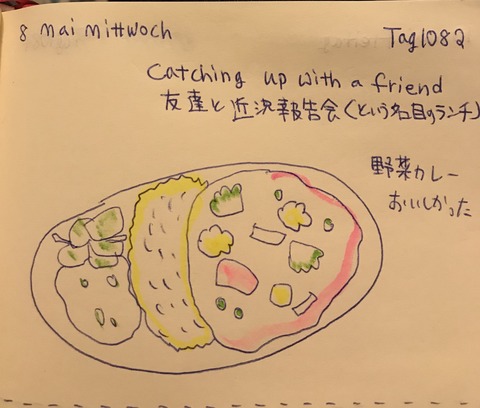 8 mai mittwoch
Tag1082
Catching up with a friend
友達と近況報告会(という名目のランチ)
野菜カレー
おいしかった